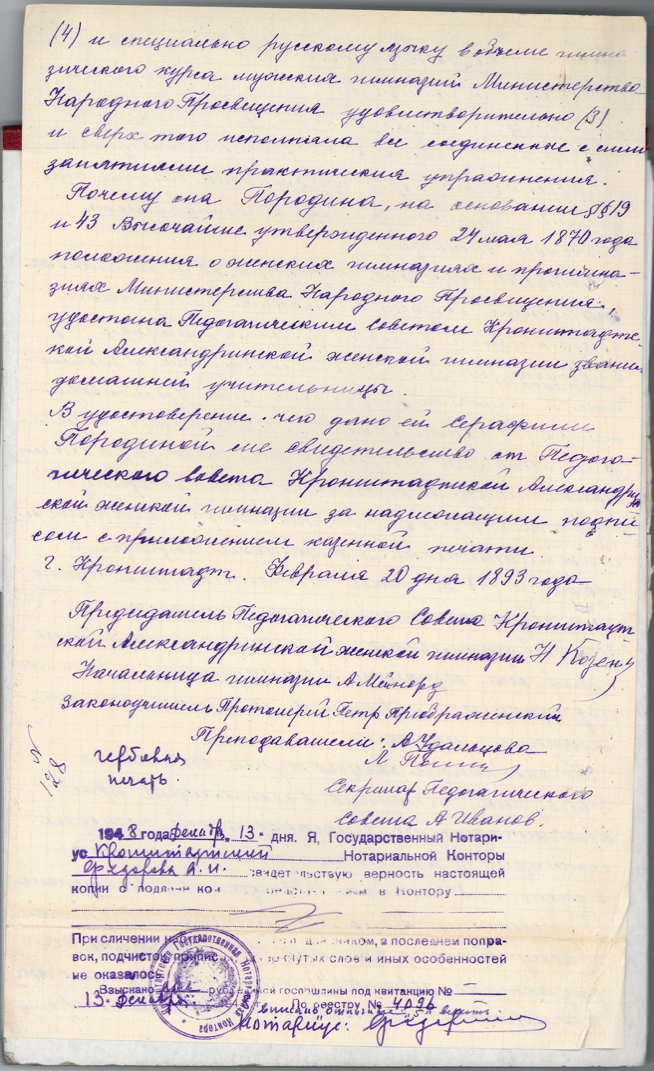 (4) и специально русскому языку в объеме гимна
зического курса мужских гимназий Министерства
Народного Просвещения удовлетворительно (3)
и сверх того исполняла все соединенные с сими
занятиями практическия упражнения.
Почему она Породина, на основании §§ 19
и 43 Высочайше утвержденного 24 мая 1870 года
положения о женских гимназиях и прогимна-
зиях Министерства Народного Просвещения,
удостоена Педогагическим Советом Кронштадтс-
кой Александринской женской гимназии звания
домашней учительницы.
В удостоверение чего дано ей Серафиме
Породиной сие свидетельство от Педога-
гического Совета Кронштадтской Александрин
ской женской гимназии за надлежащим подпи-
сом с приложением казенной печати.
г. Кронштадт. Февраля 20 дня 1893 года
Председатель Педогагического Совета Кронштадт
ской Александринской женской гимназии Н
Начальница гимназии А Мейнерд
Законоучитель Протоиерей Петр Преображенский
Преподаватели: А. Удальцова
Л.
Секретарь Педогагического
Совета А Иванов
№ 128
гербовая
печать.
1948 года декабр. 13 дня. Я, Государственный Нотари-
ус Кронштадтской Нотариальной Конторы
Федорова свидетельствую верность настоящей
копии с подлинником в Контору
При сличении подлинником, в последнем поправок,
вок, подчисток, приписок слов и иных особенностей
не оказалось
Взыскано рублей госпошлины под квитанцию № —
13 декабря По реестру № 4096
Государственная Нотариальная Контора
Нотариус: